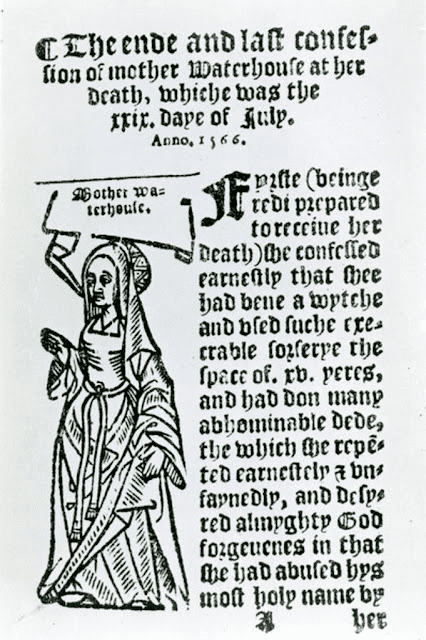 ¶ The ende and laſt confeſ-
ſion of mother Waterhouſe at her
death, whiche was the
xxix. daye of July.
Anno. 1566.
Mother wa-
terhouſe.
Fyrſte (beinge
redi prepared
to receiue her
death) ſhe confeſſed
earneſtly that ſhee
had bene a wytche
and vſed ſuche exe-
crable ſorſerye the
ſpace of. xv. yeres,
and had don many
abhominable dede,
the which ſhe repē-
ted earneſtely ⁊ vn-
faynedly, and deſy-
red almyghty God
forgeuenes in that
ſhe had abuſed hys
moſt holy name by
A her